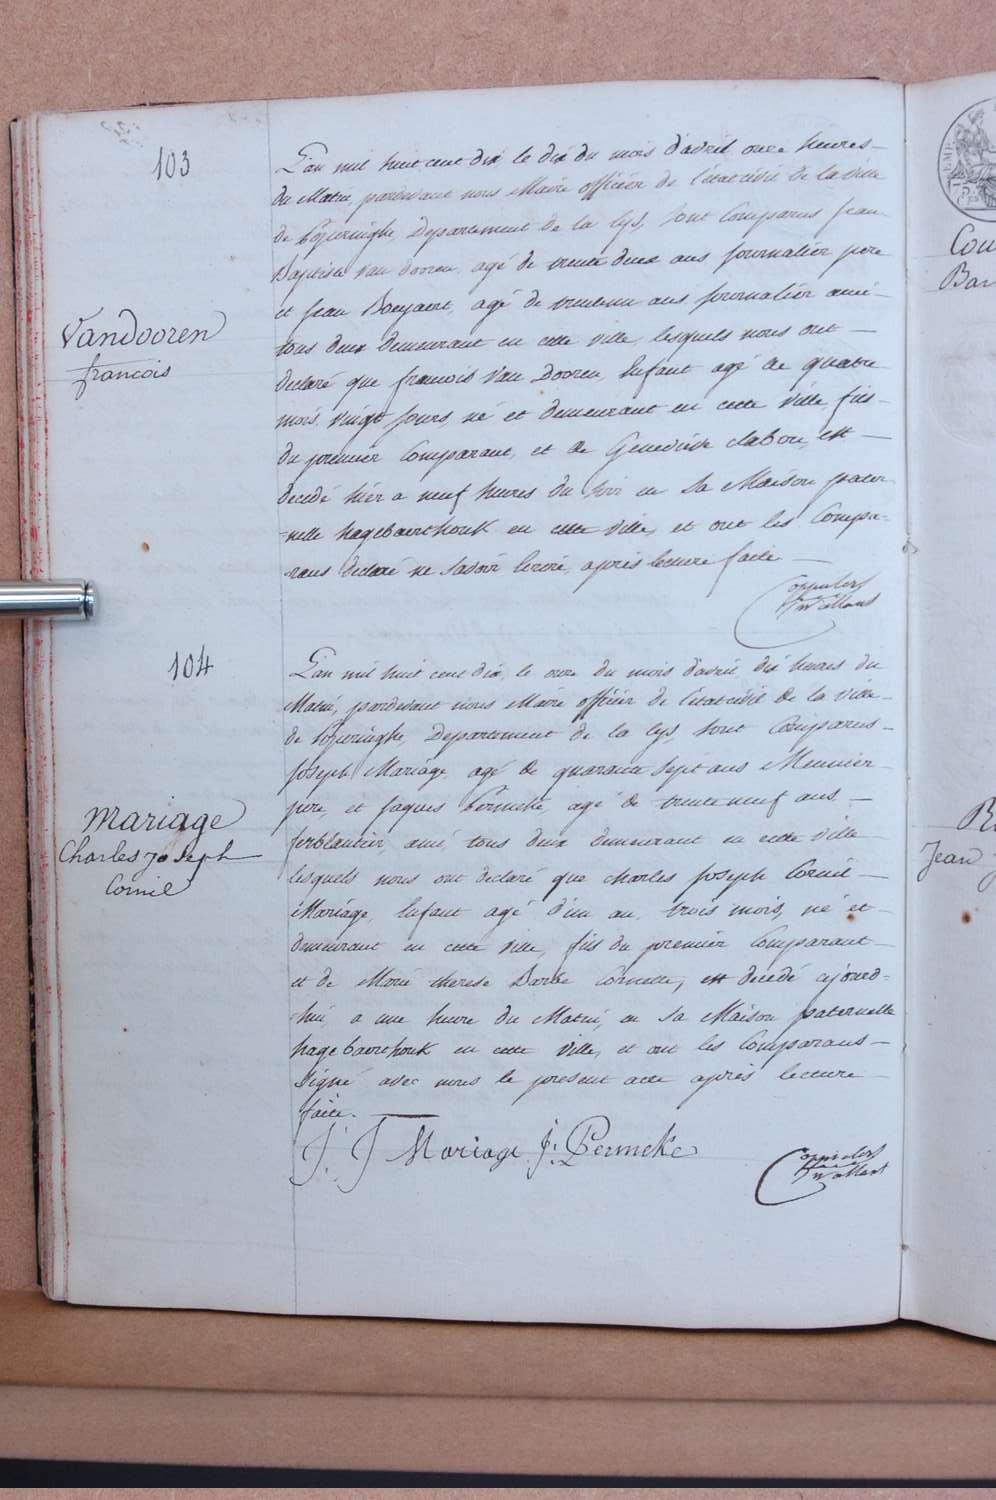 103
L'an mil huit cent dix le dix du mois d'avril onze heures
du Matin, pardevant nous Maire officier de l'état civil de la ville
de Poperinghe, Departement de la Lys, sont Comparus Jean
Baptiste Van dooren agé de trente deux ans journalier pere
et Jean Boeyaert, agé de trenteun ans journalier ami
tous deux demeurant en cette ville, lesquels nous ont
Vandooren
francois
declaré que francois Van Dooren, Enfant agé de quatre
mois, vingt jours, né et demeurant en cette ville, fils
du premier Comparant, et de Genevieve est
decedé hier a neuf heures du soir en sa Maison pater
nelle hagebaerthouk en cette ville, et ont les Compa-
rans declaré ne savoir ecrire, après lecture faite
104
L'an mil huit cent dix, le onze du mois d'avril, dix heures du
Matin, pardevant nous Maire officier de l'état civil de la ville
de Poperinghe, Departement de la Lys, sont Comparus
Joseph Mariage, agé de quarante sept ans Meunier
pere, et Jaques Permeke, agé de trente neuf ans
Mariage
Charles Joseph
Cornil
ferblantier, ami, tous deux demeurant en cette ville
lesquels nous ont declaré que Charles Joseph Cornil
Mariage, Enfant agé d'un an, trois mois, né et
demeurant en cette ville, fils du premier Comparant
et de Marie therese Barbe Cornette, est decedé ajourd-
hui, a une heure du Matin, en sa Maison paternelle
hagebaerthouk en cette ville, et ont les Comparans
signé avec nous le present acte après lecture
faite.
J. J Mariage J. Permeke
Cou
Bar
Jean